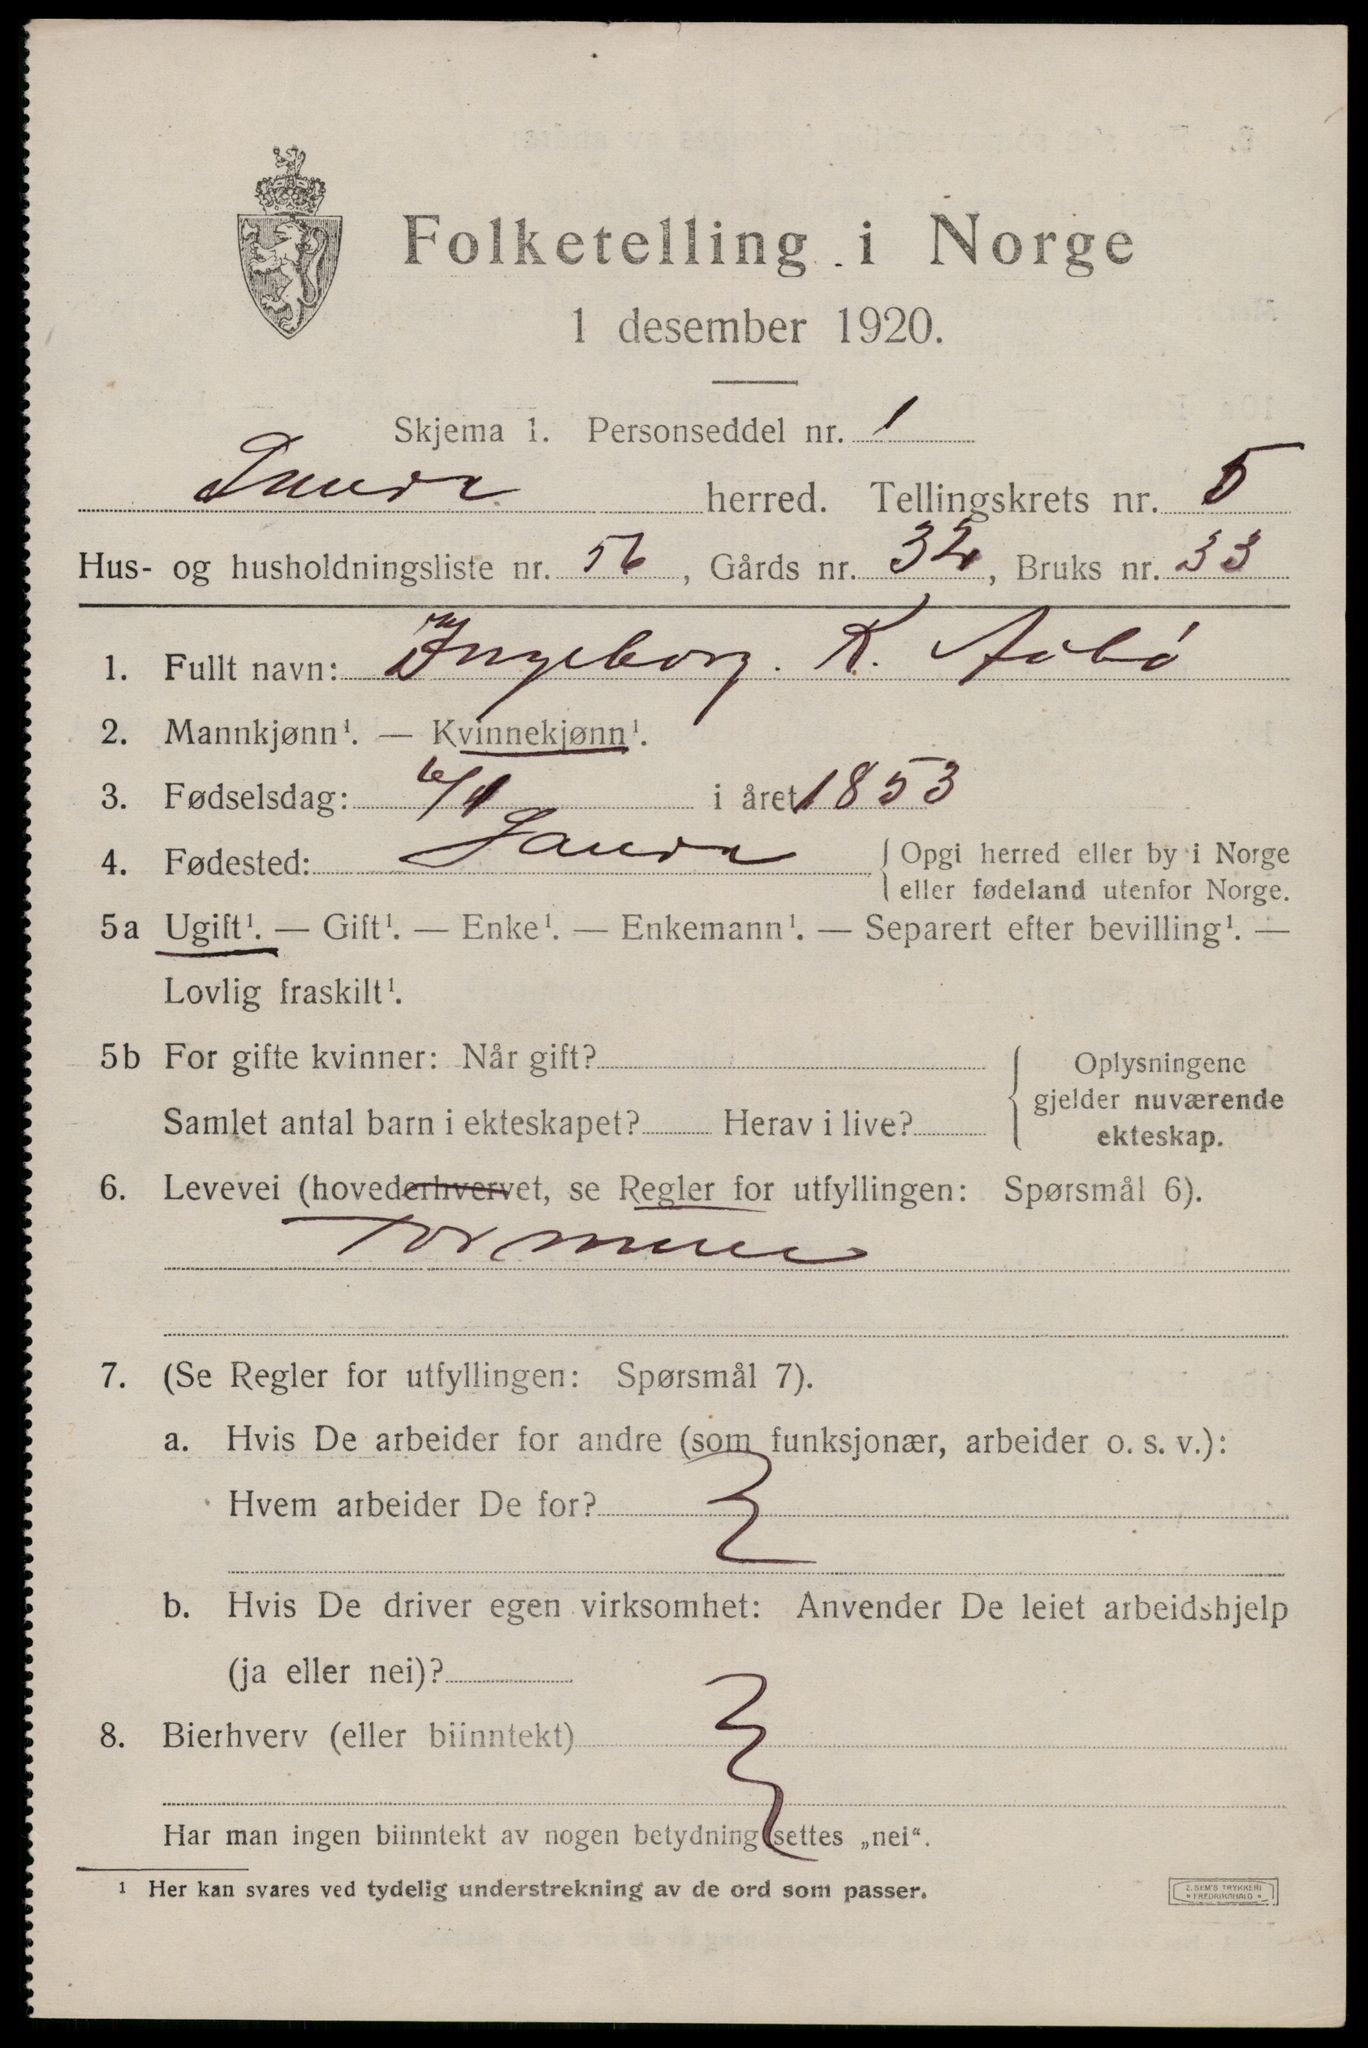 Folketelling i Norge
1 desember 1920.
Skjema 1. Personseddel nr. 1
Sauda herred. Tellingskrets nr. 5
Hus- og husholdningsliste nr. 56, Gårds nr. 32, Bruks nr. 33
1. Fullt navn: Ingeborg. K. Aabø
2. Mannkjønn¹. — Kvinnekjønn¹.
3. Fødselsdag: 6/1 i året 1853
4. Fødested: Sauda { Opgi herred eller by i Norge
eller fødeland utenfor Norge.
5a Ugift¹. — Gift¹. — Enke¹. — Enkemann¹. — Separert efter bevilling¹. —
Lovlig fraskilt¹.
5b For gifte kvinner: Når gift?
Samlet antal barn i ekteskapet? Herav i live?
Oplysningene
gjelder nuværende
ekteskap.
6. Levevei (hovederhvervet, se Regler for utfyllingen: Spørsmål 6).
7. (Se Regler for utfyllingen: Spørsmål 7).
a. Hvis De arbeider for andre (som funksjonær, arbeider o. s. v.):
Hvem arbeider De for?
b. Hvis De driver egen virksomhet: Anvender De leiet arbeidshjelp
(ja eller nei)?
8. Bierhverv (eller biinntekt)
Har man ingen biinntekt av nogen betydning settes „nei“.
¹ Her kan svares ved tydelig understrekning av de ord som passer.
E. SEM'S TRYKKERI
FREDRIKSHALD